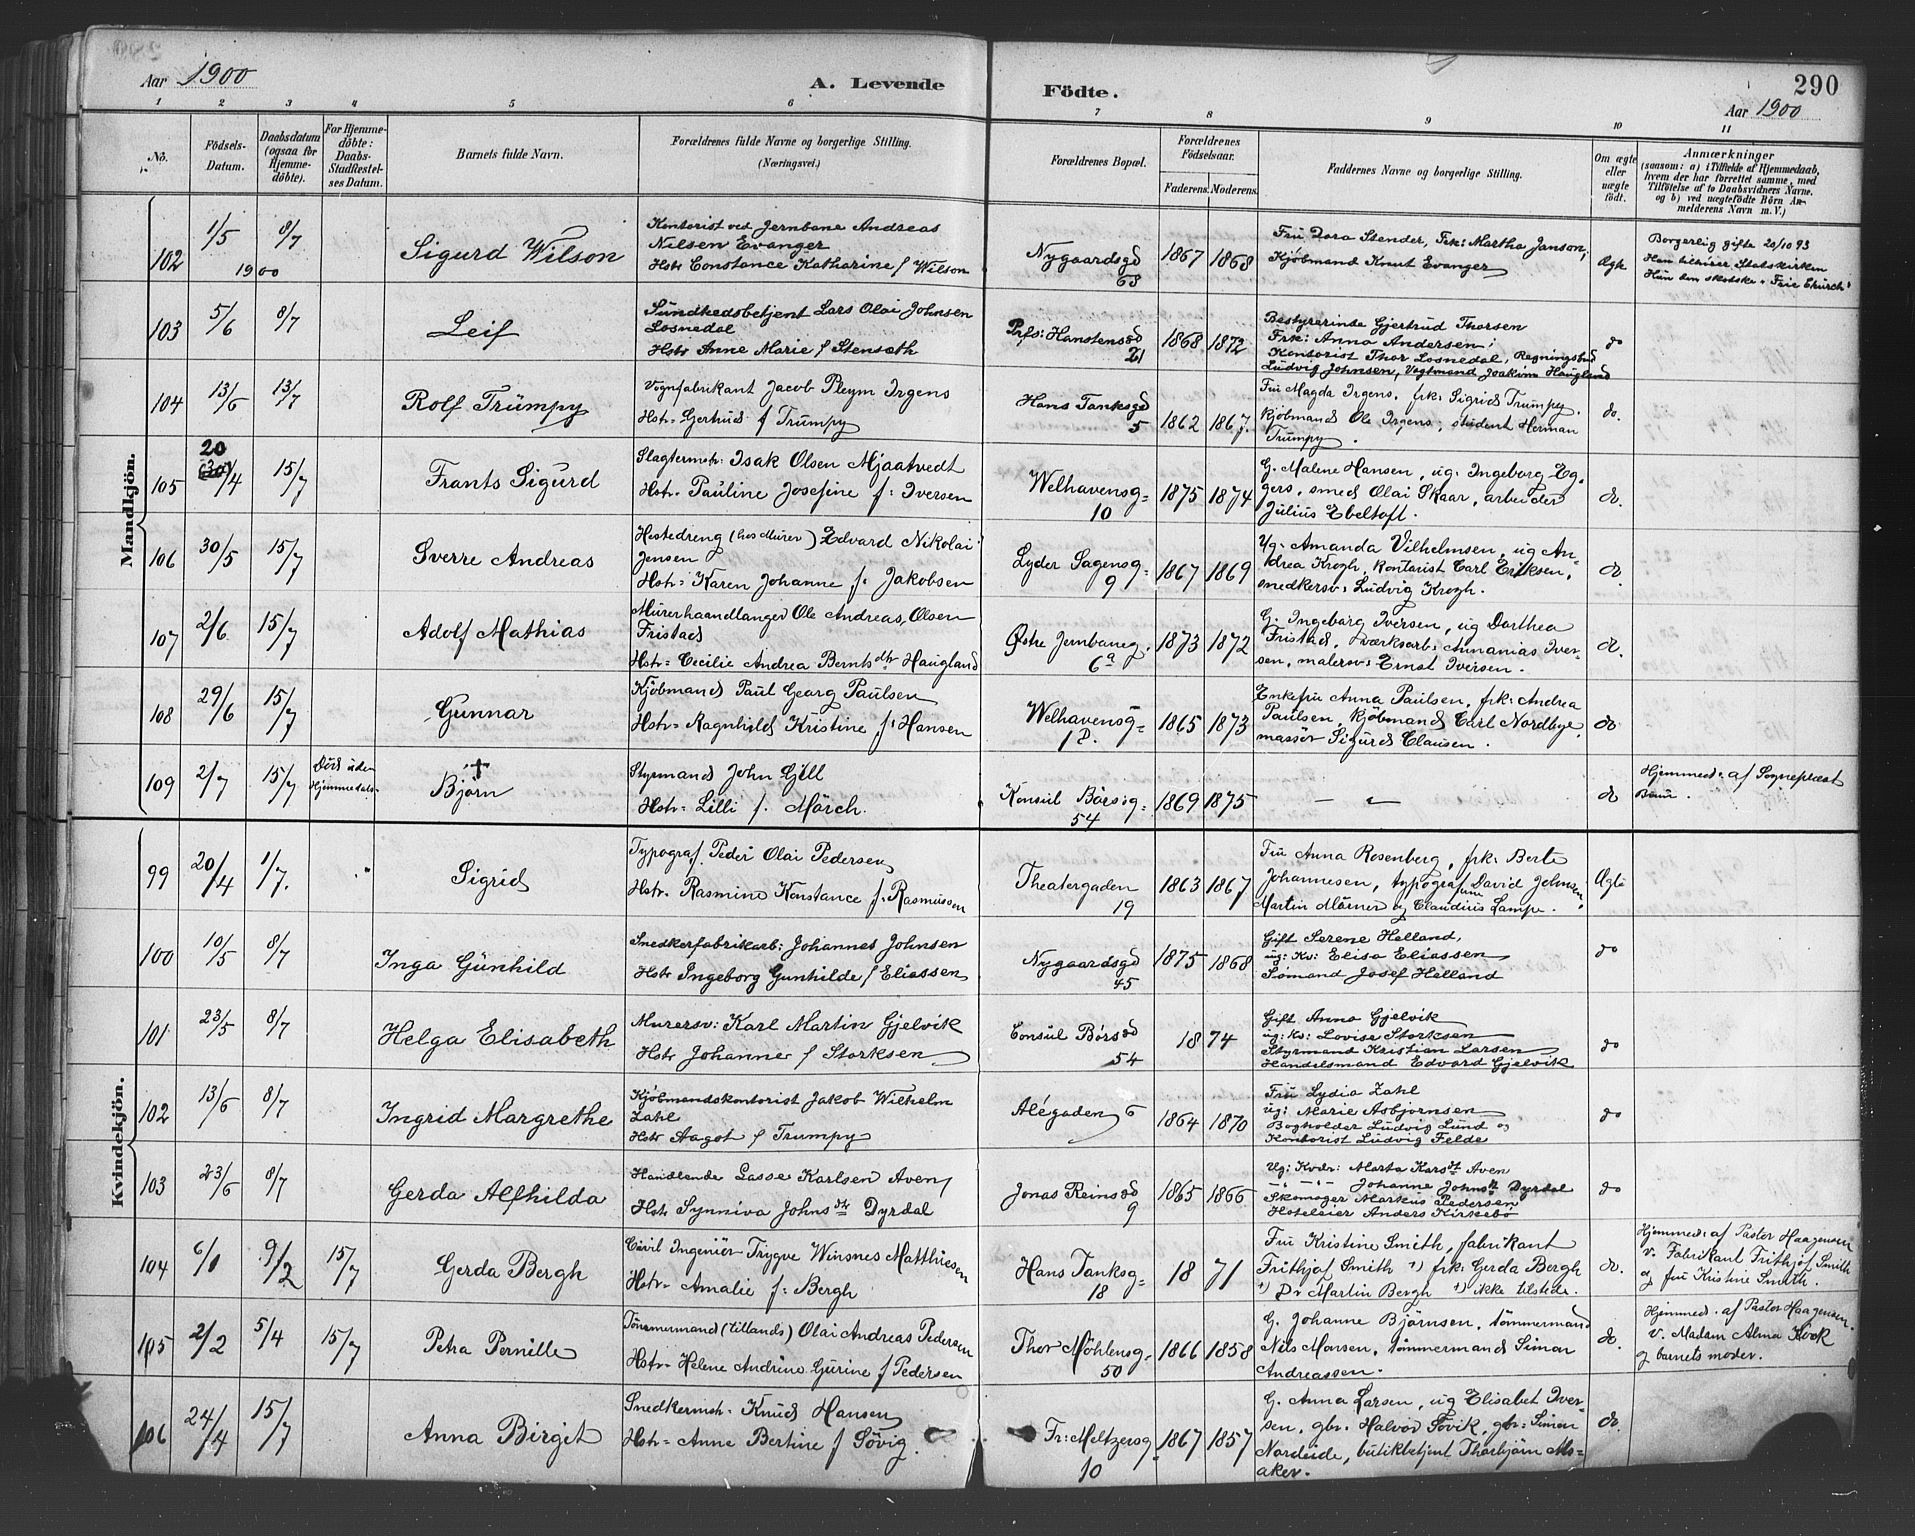 290
Aar 1900
A. Levende Födte.
Aar 1900
1 2 3 4 5 6 7 8 9 10 11
No.
Födsels-Datum.
Daabsdatum (ogsaa for Hjemme-döbte).
For Hjemme-döbte: Daabs-Stadfæstel-ses Datum.
Barnets fulde Navn.
Forældrenes fulde Navne og borgerlige Stilling.
(Næringsvei.)
Forældrenes Bopæl.
Forældrenes Födselsaar.
Faderens. Moderens.
Faddernes Navne og borgerlige Stilling.
Om ægte eller uægte födt.
Anmærkninger
(saasom: a) i Tilfælde af Hjemmedaab,
hvem der har forrettet samme, med
Tilföielse af to Daabsvidners Navne.
og b) ved uægtefödte Börn An-
melderens Navn m. V.)
Mandkjön.
102 1/5 1900 8/7 Sigurd Wilson
Kontorist ved Jernbane Andreas
Nilsen Evanger
Hstr Constance Katharine f Wilson
Nygaardsgd 68 1867 1868
Fru Dora Stender, Frk: Martha Janson,
Kjöbmand Knut Evanger
Ægte
Borgerlig gifte 20/10 93
Han tilhører Statskirken
Hun den skotske "Frie Church"
103 5/6 8/7 Leif
Sundhedsbetjent Lars Olai Johnsen
Losnedal
Hstr Anne Marie f Stensæth
Prfs: Hanstensgd 21 1868 1872
Bestyrerinde Gjertrud Thorsen
Frk: Anna Andersen;
Kontorist Thor Losnedal, Regningsbud
Ludvig Johnsen, Vegtmand Joakim Haugland
do
104 13/6 13/7 Rolf Trümpy
Vognfabrikant Jacob Pleym Irgens
Hst: Gertrud f Trümpy
Hans Tanksgd 5 1862 1867.
Fru Magda Irgens, frk: Sigrid Trumpy,
Kjöbmand Ole Irgens, student Herman
Trumpy.
do.
105 20/4 15/7 Frants Sigurd
Slagtermstr: Isak Olsen Mjaatvedt
Hstr. Pauline Josefine f: Iversen
Welhavensg= 10 1875 1874
G. Malene Hansen, ug: Ingeborg Eg-
gers, smed Olai Skaar, arbeider
Julius Ebeltoft.
do.
106 30/5 15/7 Sverre Andreas
Hestedreng (hos Murer) Edvard Nikolai
Jensen
Hstr= Karen Johanne f. Jakobsen
Lyder Sagensg= 9 1867 1869
Ug. Amanda Vilhelmsen, ug An-
drea Krogh, kontorist Carl Eriksen,
snedkersv: Ludvig Krogh.
do.
107 2/6 15/7 Adolf Mathias
Murerhaandlanger Ole Andreas Olsen
Fristad
Hstr= Cecilie Andrea Bernts dtr Haugland
Østre Jernbaneg. 6a 1873 1872
G. Ingeborg Iversen, ug Dorthea
Fristad, værksarb: Annanias Iver-
sen, malersv: Ernst Iversen.
do.
108 29/6 15/7 Gunnar
Kjöbmand Paul Georg Paulsen
Hstr= Ragnhild Kristine f: Hansen
Welhavensg= 1865 1873
Enkefru Anna Paulsen, frk: Andrea
Paulsen, kjöbmand Carl Nordbye,
massör Sigurd Clausen.
do.
109 2/7 15/7 Död uden Hjemmedaabs- † Björn
Styrmand John Gjell
Hstr= Lilli f. Mörch.
Konsul Börsg= 54 1869 1875
do
Hjemmed= af Sognepræst
Kvindekjön.
99 20/4 1/7. Sigrid
Typograf Peder Olai Pedersen
Hstr. Rasmine Konstance f. Rasmussen
Theatergaden 19 1863 1867
Fru Anna Rosenberg, frk: Berte
Johannesen, typograferne David Johnsen,
Martin Mörner og Claudius Lampe.
Ægte
100 10/5 8/7 Inga Günhild
Snedkerfabrikarb: Johannes Johnsen
Hstr Ingeborg Gunhilde f Eliassen
Nygaardsgd 45 1875 1868
Gift Serene Helland,
ug: Kv: Elisa Eliassen
Sømand Josef Helland
do
101 23/5 8/7 Helga Elisabeth
Murersv: Karl Martin Gjelvik
Hstr Johanne f Storksen
Consul Börsgd 54 1874
Gift Anna Gjelvik
ug: Kv: Lovise Storksen
Styrmand Kristian Larsen
Handelsmand Edvard Gjelvik
do
102 13/6 8/7 Ingrid Margrethe
Kjöbmandskontorist Jakob Wilhelm
Zahl
Hstr Aagot f Trumpy
Alégaden 6 1864 1870
Fru Lydia Zahl
ug: Marie Asbjørnsen
Bogholder Ludvig Lund og
Kontorist Ludvig Felde
do
103 23/6 8/7 Gerda Alfhilda
Handlende Lasse Karlsen Aven
Hstr Synniva Johns dtr Dyrdal
Jonas Reinsgd 9 1865 1866
Ug: Kvdr: Marta Karsdt Aven
— " — " — Johanne Johnsdt Dyrdal
Skomager Markus Pedersen
Hoteleier Anders Kirkebö
do
104 6/1 9/2 15/7 Gerda Bergh
Civil Ingeniör Trygve Winsnes Matthiesen
Hstr. Amalie f: Bergh
Hans Tanksg= 18 1871
Fru Kristine Smith, fabrikant
Frithjof Smith 1) frk: Gerda Bergh
1) Dr Martin Bergh 1) ikke tilstede.
do.
Hjemmed: af Pastor Haagensen
v. Fabrikant Frithjof Smith
og fru Kristine Smith.
105 2/2 5/4 15/7 Petra Pernille
Tömmermand (tillands) Olai Andreas Pedersen
Hstr= Helene Andrine Gurine f Pedersen
Thor Möhlensg= 50 1866 1858
G. Johanne Björnsen, tömmermand
Nils Monsen, tömmermand Simon
Andreassen.
do.
Hjemmed. af Pastor Haagensen.
v. Madam Alma Kook
og barnets moder.
106 24/4 15/7 Anna Birgit
Snedkermstr. Knud Hansen
Hstr= Anne Bertine f Søvig.
Fr: Meltzersg= 10 1867 1857
G. Anna Larsen, ug Elisabet Iver-
sen, gbr: Halvor Søvik, gbr= Simon
Nordeide, butikbetjent Thorbjörn As-
aker.
do.